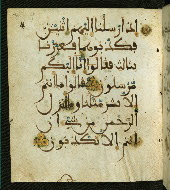 إذ أرسلنا إليهم اثنين
فكذبوهما فعززنا
بثالث فقالوا إنا إليكم
مرسلون قالوا ما أنتم
إلا بشر مثلنا وما أنزل
الرحمن من شيء إن
أنتم إلا تكذبون